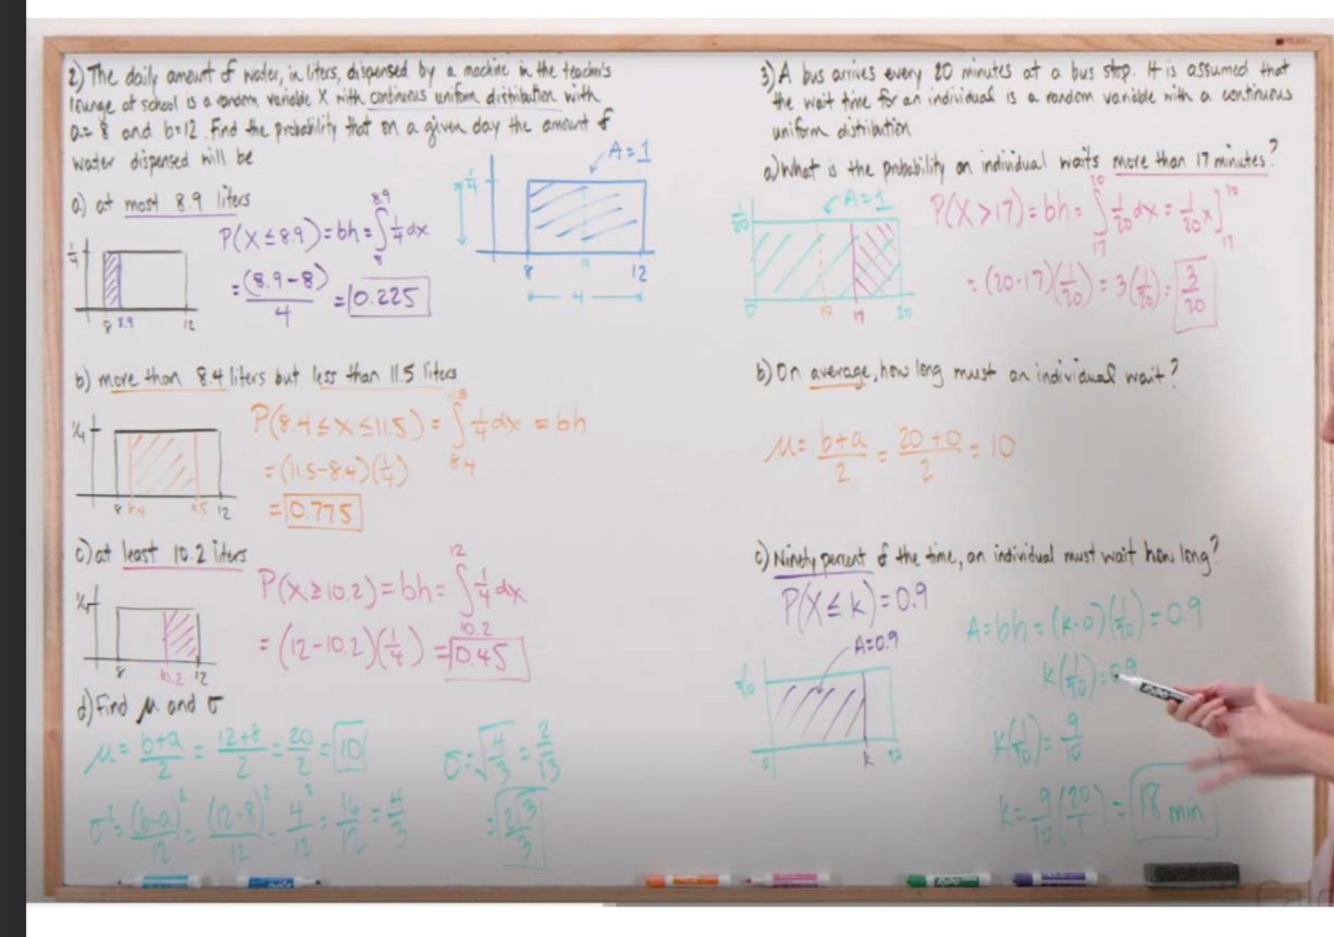 2) The daily amount of water, in liters, dispensed by a machine in the teacher's
lounge at school is a random variable X with continuous uniform distribution with
a= 8 and b=12. Find the probability that on a given day the amount of
water dispensed will be
A=1
1/4
8 10 12
4
a) at most 8.9 liters
P(X≤8.9)=bh=∫ 8 8.9 1/4 dx
= (8.9-8)/4 = 0.225
1/4
8 8.9 12
b) more than 8.4 liters but less than 11.5 liters
P(8.4≤X≤11.5)= ∫ 8.4 11.5 1/4 dx = bh
=(11.5-8.4)(1/4)
= 0.775
1/4
8 8.4 11.5 12
c) at least 10.2 liters
P(X≥10.2)=bh= ∫ 10.2 12 1/4 dx
= (12-10.2)(1/4) = 0.45
1/4
8 10.2 12
d) Find μ and σ
μ= b+a/2 = 12+8/2 = 20/2 = 10
σ²= (b-a)²/12 = (12-8)²/12 = 4²/12 = 16/12 = 4/3
σ=√4/3 = 2/√3
= 2√3/3
3) A bus arrives every 20 minutes at a bus stop. It is assumed that
the wait time for an individual is a random variable with a continuous
uniform distribution
a) What is the probability an individual waits more than 17 minutes?
A=1
1/20
0 10 17 20
P(X>17)=bh= ∫ 17 20 1/20 dx = 1/20 x] 17 20
= (20-17)(1/20) = 3(1/20) = 3/20
b) On average, how long must an individual wait?
μ= b+a/2 = 20+0/2 = 10
c) Ninety percent of the time, an individual must wait how long?
P(X≤k)=0.9
A=0.9
1/20
0 k 20
A=bh=(k-0)(1/20)=0.9
k(1/20)=0.9
k(1/20)= 9/10
k= 9/10 (20/1) = 18 min